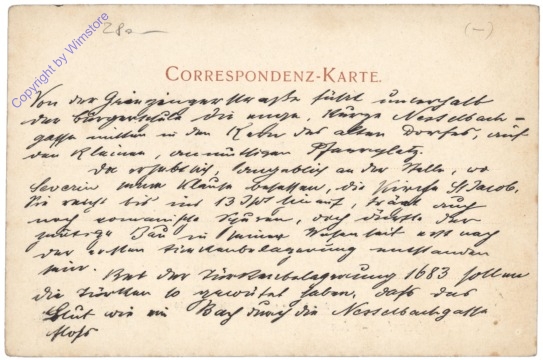 28.-
(-)
Copyright by Wimstore
CORRESPONDENZ-KARTE.
Von der Grinzingerstraße führt unterhalb
der Bürgerschule die enge, kurze Nesselbach-
gasse mitten in den Kern des alten Dorfes, auf
den kleinen, anmutigen Pfarrplatz.
Da erhebt sich, angeblich an der Stelle, wo
Severin seine Klause besessen, die Kirche St Jacob.
Sie reicht bis ins 13 Jhdt hinauf, trägt auch
noch romanische Spuren, doch dürfte der
heutige Bau in seiner Wesenheit erst nach
der ersten Türkenbelagerung entstanden
sein. Bei der Türkenbelagerung 1683 sollen
die Türken so gewütet haben, daß das
Blut wie ein Bach durch die Nesselbachgasse
floß